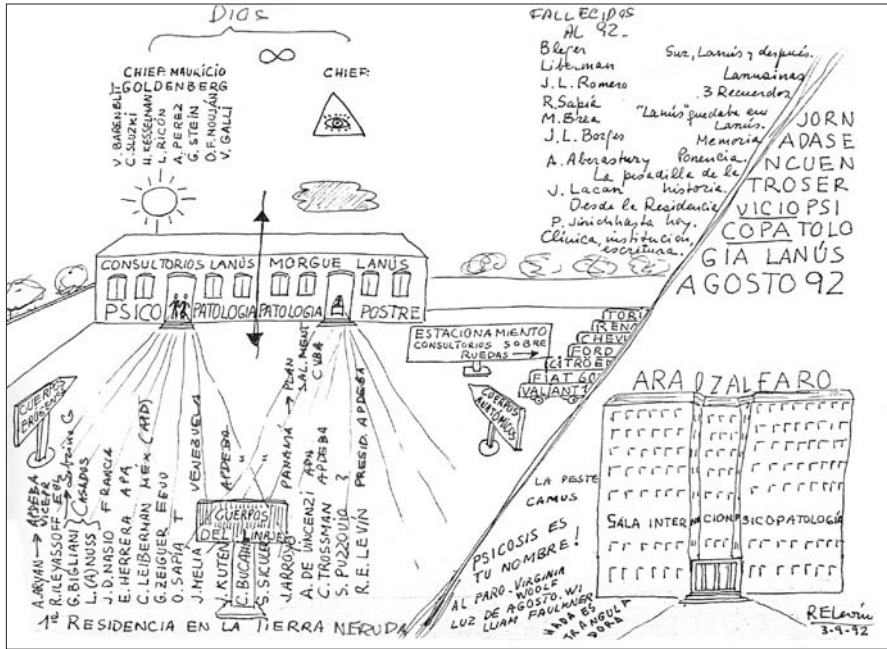 DIOS
∞
CHIEF: MAURICIO
GOLDENBERG
V. BARENBLI-
C. SLUZKI
H. KESSELMAN
L. RICÓN
A. PEREZ
G. STEIN
O.F. NOUJÁN
V. GALLI
CHIEF:
FALLECIDOS
AL 92_
Bleger
Liberman
J.L. Romero
R. Sapiá
M. Brea
J.L. Borges
A. Aberastury
J. Lacan
P. Jinich
Sur, Lanús y después.
Lanusinas
3 Recuerdos
"Lanús" quedaba en
Lanús.
Memoria
Ponencia.
La pesadilla de la
historia.
Desde la Residencia
hasta hoy.
Clínica, institución,
escritura.
JORN
ADAS E
NCUEN
TRO SER
VICIO PSI
COPATOLO
GIA LANÚS
AGOSTO 92
CONSULTORIOS LANÚS
MORGUE LANÚS
PSICO PATOLOGIA
PATOLOGIA POSTRE
ESTACIONAMIENTO
CONSULTORIOS SOBRE
RUEDAS →
RENO
CHEV
FORD
CITROËN
FIAT 60
VALIANT
CUERPOS
ERÓGENOS
CUERPOS
ANATÓMICOS
CUERPOS
DEL LINAJE
A. ARYAN → APDEBA
VICEPR
R. ILEYASSOFF EOL
G. BIGLIANI → Sabrino G
L. (A) NUSS } CASADOS
J.D. NASIO FRANCIA
E. HERRERA APA
C. LEIBERMAN MEX (APD)
G. ZEIGUER EEUU
O. SAPIA T
J. MELIA VENEZUELA
J. KUTEN APDEBA
C. BUCAH "
S. SICUER "
J. ARROYO PANAMÁ → PLAN
SAL. MENT
CUBA
A. DE VINCENZI APA
C. TROSSMAN APDEBA
S. PUZZOVIO ?
R.E. LEVÍN PRESID. APDEBA
1º RESIDENCIA EN LA TIERRA NERUDA
ARAOZ ALFARO
SALA INTERNACION PSICOPATOLOGÍA
LA PESTE
CAMUS
PSICOSIS ES
TU NOMBRE!
AL FARO. VIRGINIA
WOOLF
LUZ DE AGOSTO. WI
LLIAM FAULKNER
NADA ES
TRANGULA
DORA
RELevín
3-9-92